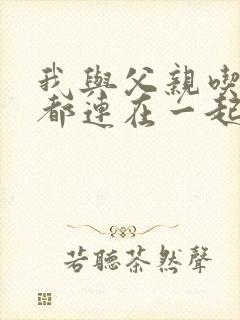 我與父親喫
都連在一起
若聽茶然聲